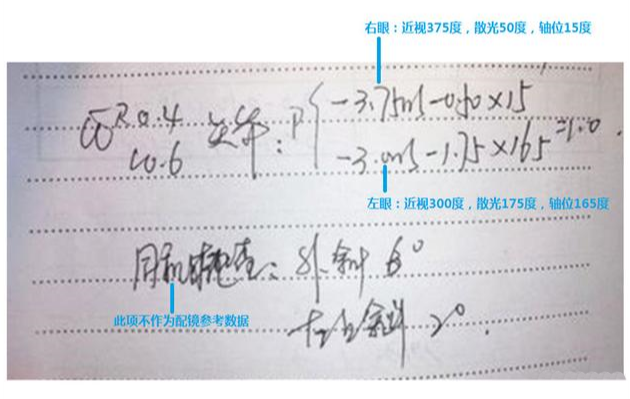 右眼：近视375度，散光50度，轴位15度
R 0.4
L 0.6
-3.75DS -0.50×15
-3.00DS -1.75×165 =1.0
左眼：近视300度，散光175度，轴位165度
同机检查：外斜 6°
此项不作为配镜参考数据
斜 2°